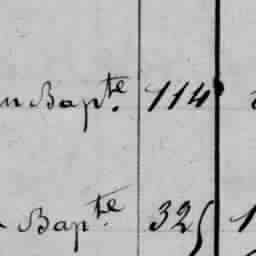 Bapte. 114
Bapte. 325